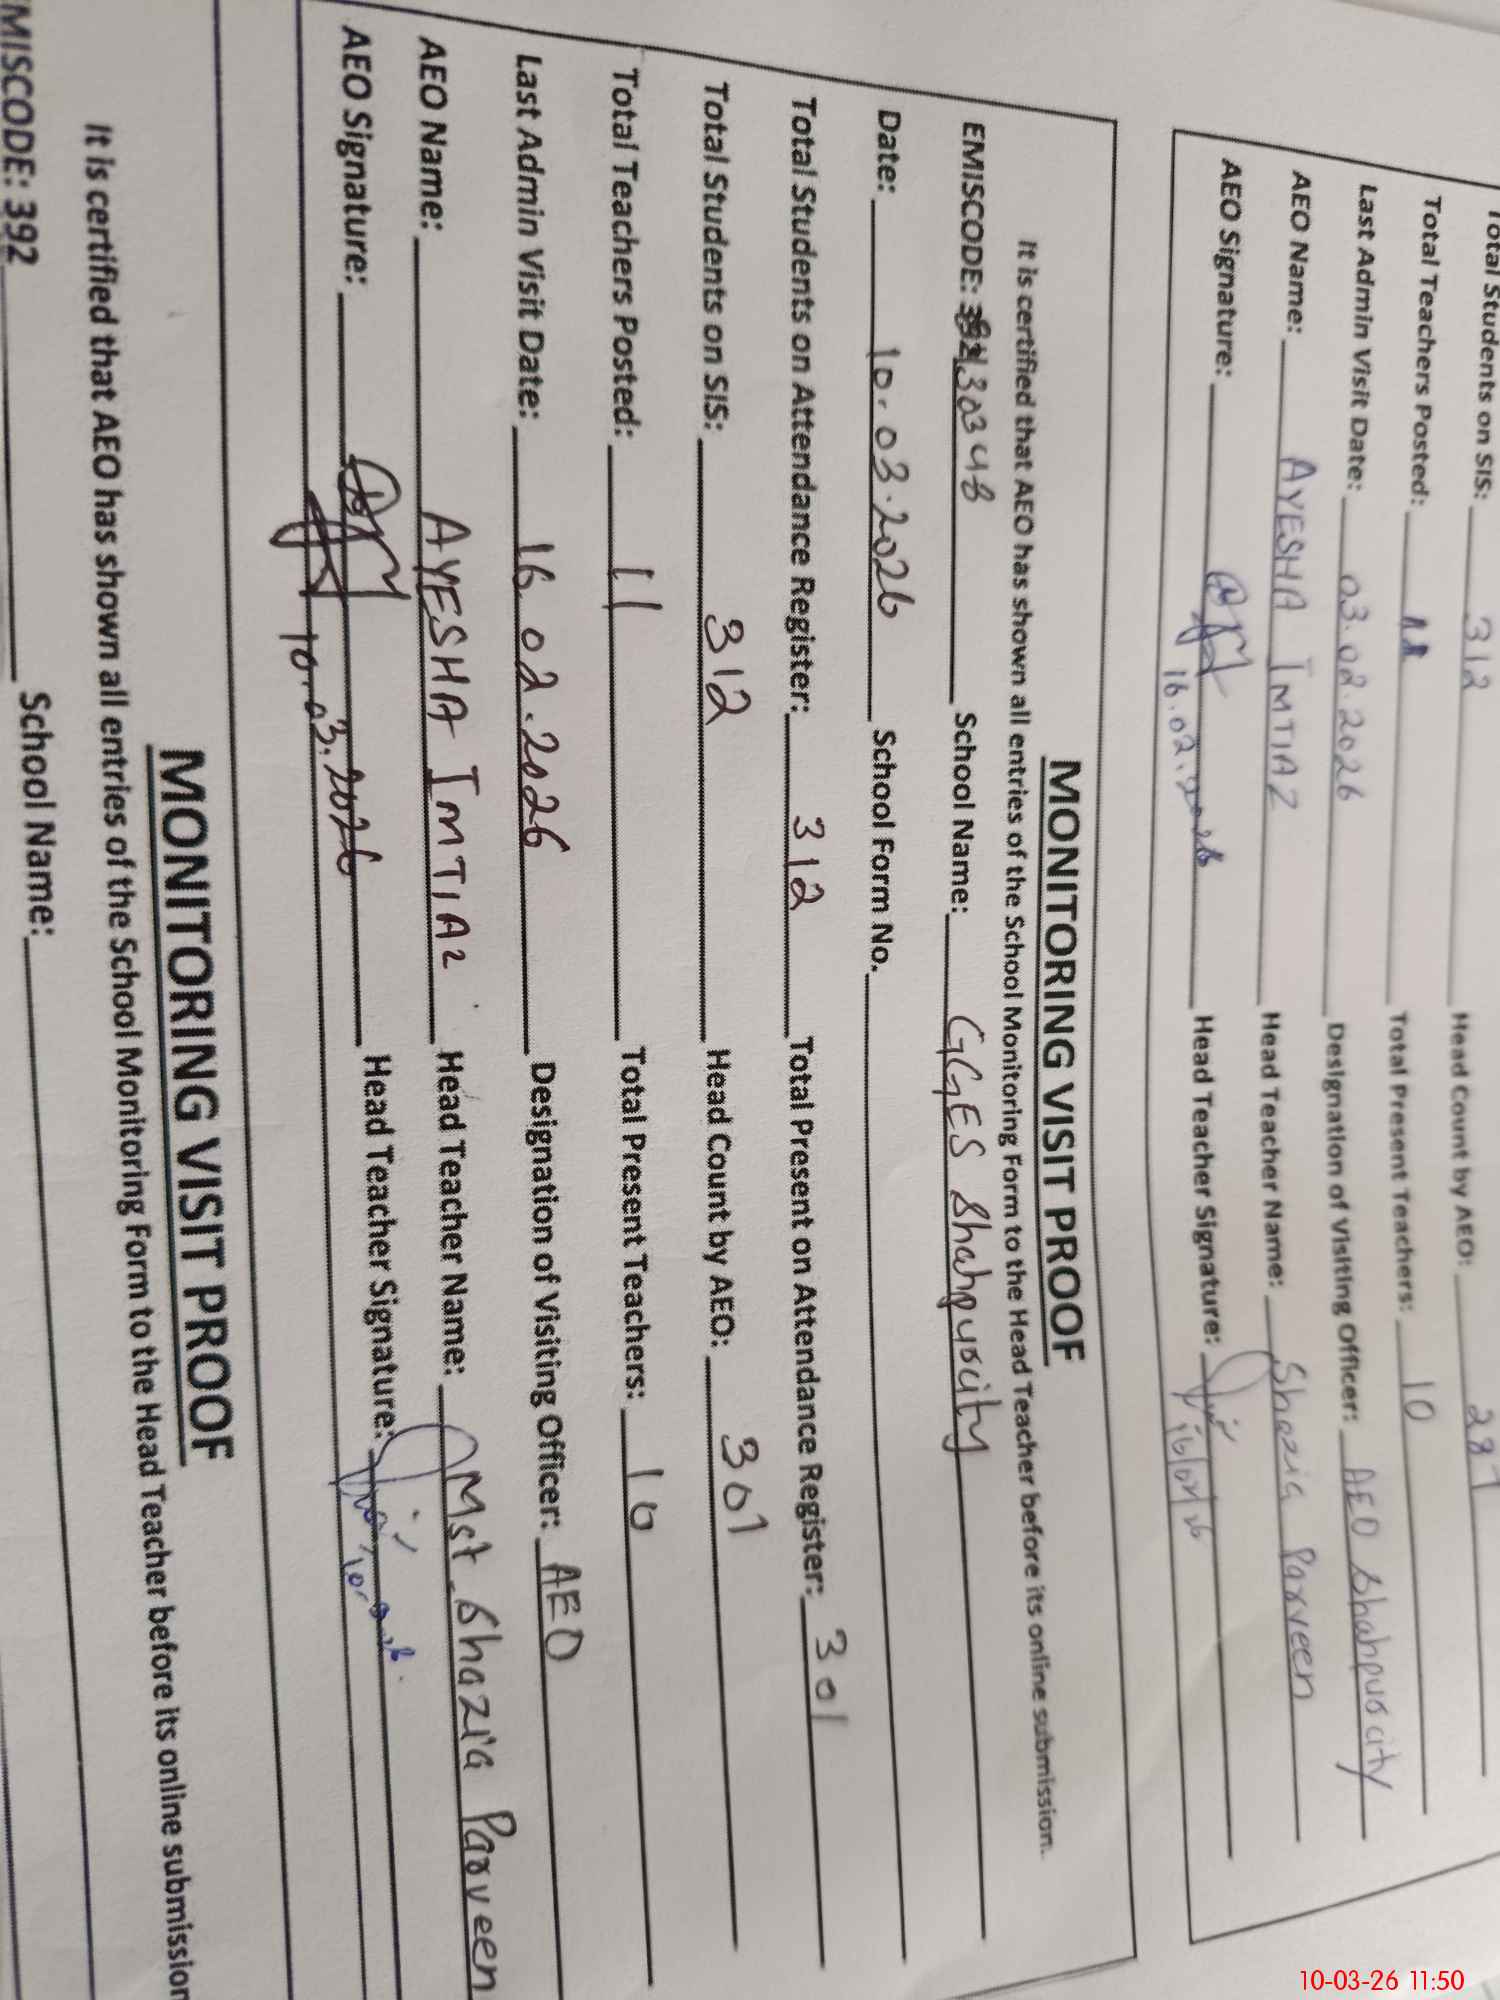 Total Students on SIS: 312 Head Count by AEO: 287
Total Teachers Posted: 11 Total Present Teachers: 10
Last Admin Visit Date: 03.02.2026 Designation of Visiting Officer: AEO Shahpur city
AEO Name: AYESHA IMTIAZ Head Teacher Name: Shazia Parveen
AEO Signature: 16.02.2026 Head Teacher Signature:
MONITORING VISIT PROOF
It is certified that AEO has shown all entries of the School Monitoring Form to the Head Teacher before its online submission.
EMISCODE: 30348 School Name: GGES Shahpurcity
Date: 10.03.2026 School Form No.
Total Students on Attendance Register: 312 Total Present on Attendance Register: 301
Total Students on SIS: 312 Head Count by AEO: 301
Total Teachers Posted: 11 Total Present Teachers: 10
Last Admin Visit Date: 16.02.2026 Designation of Visiting Officer: AEO
AEO Name: AYESHA IMTIAZ Head Teacher Name: Mst. Shazia Parveen
AEO Signature: 10.03.2026 Head Teacher Signature:
MONITORING VISIT PROOF
It is certified that AEO has shown all entries of the School Monitoring Form to the Head Teacher before its online submission
EMISCODE: 392 School Name:
10-03-26 11:50